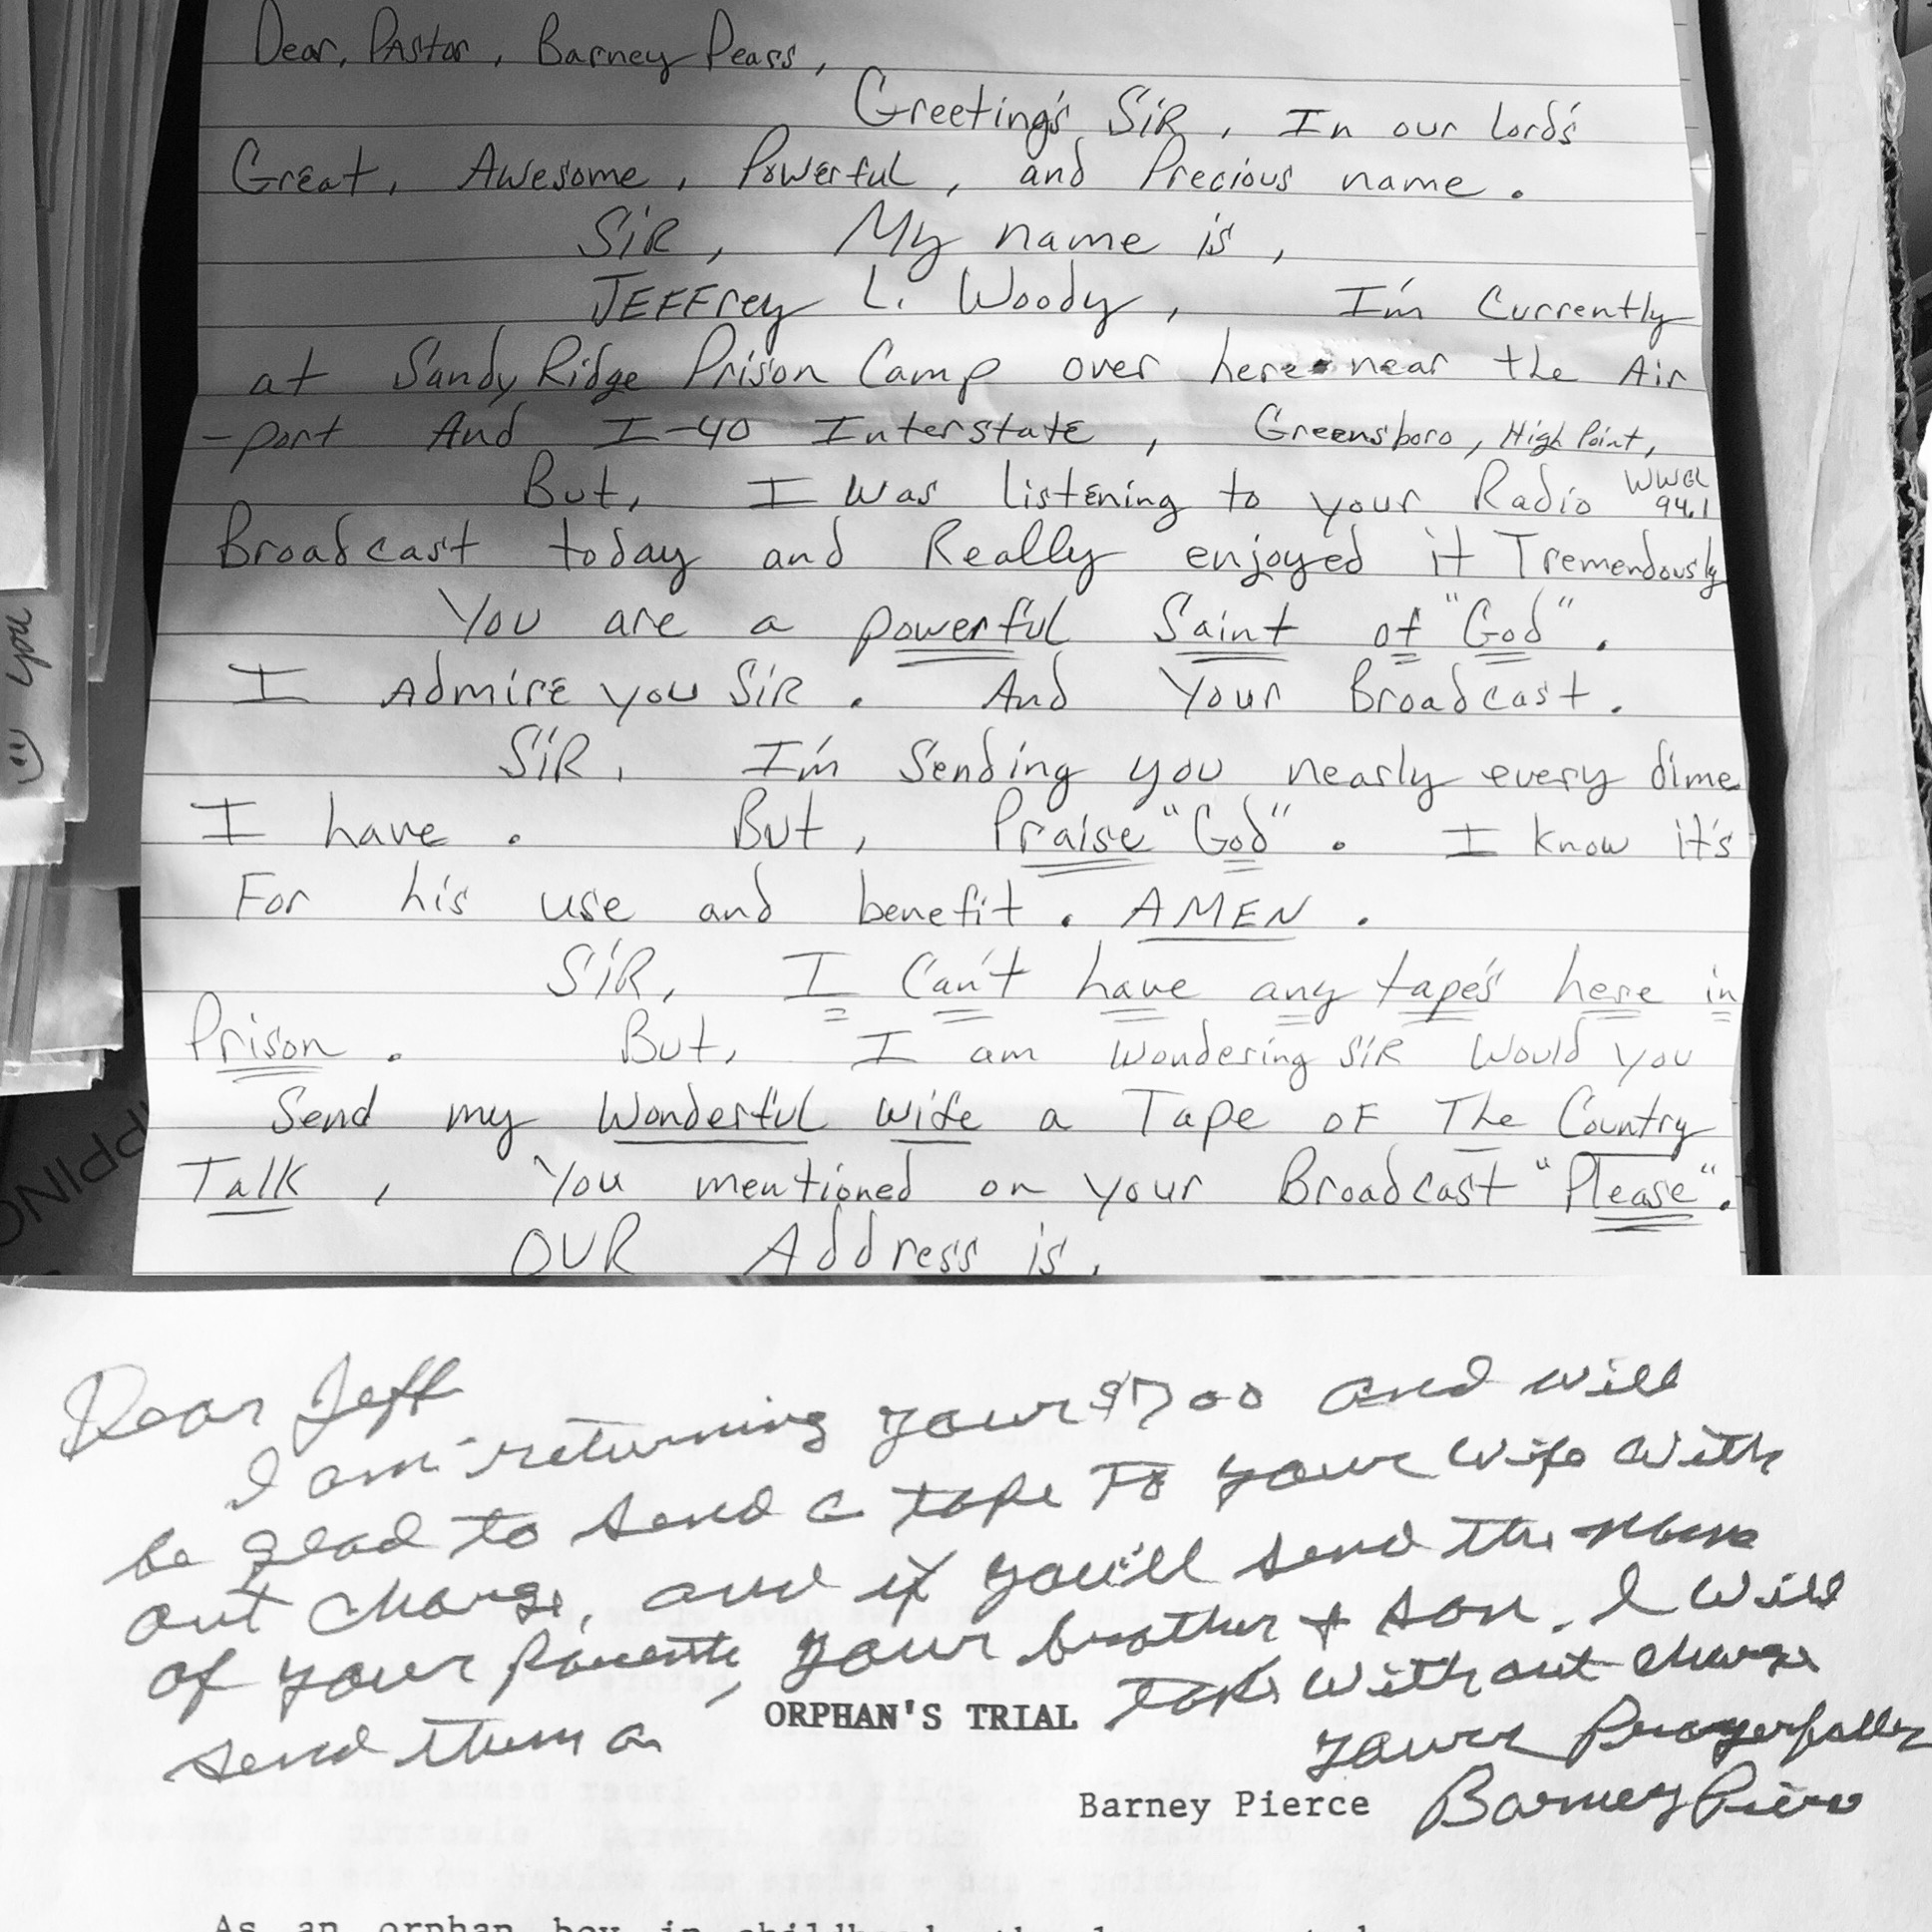 Dear, Pastor, Barney Pearss,
Greeting's SiR, In our Lord's
Great, Awesome, Powerful, and Precious name.
SiR, My name is,
JEFFrey L. Woody, I'm Currently
at Sandy Ridge Prison Camp over here near the Air
-port And I-40 Interstate, Greensboro, High Point,
But, I was listening to your Radio WWGL 94.1
Broadcast today and Really enjoyed it Tremendously
You are a powerful Saint of "God".
I Admire you SiR. And Your Broadcast.
SiR, I'm Sending you nearly every dime
I have. But, Praise "God". I know it's
For his use and benefit. AMEN.
SiR, I Can't have any tape's here in
Prison. But, I am wondering SiR Would you
Send my Wonderful wife a Tape of The Country
Talk, You mentioned on your Broadcast "Please".
OUR Address is,
you
Dear Jeff
I am returning your $7.00 and will
be glad to send a tape To your wife with
out charge, and if you'll send the name
of your parents, your brother + son, I will
send them a tape without charge
ORPHAN'S TRIAL
Yours Prayerfully
Barney Pierce Barney Pierce
As an orphan boy in